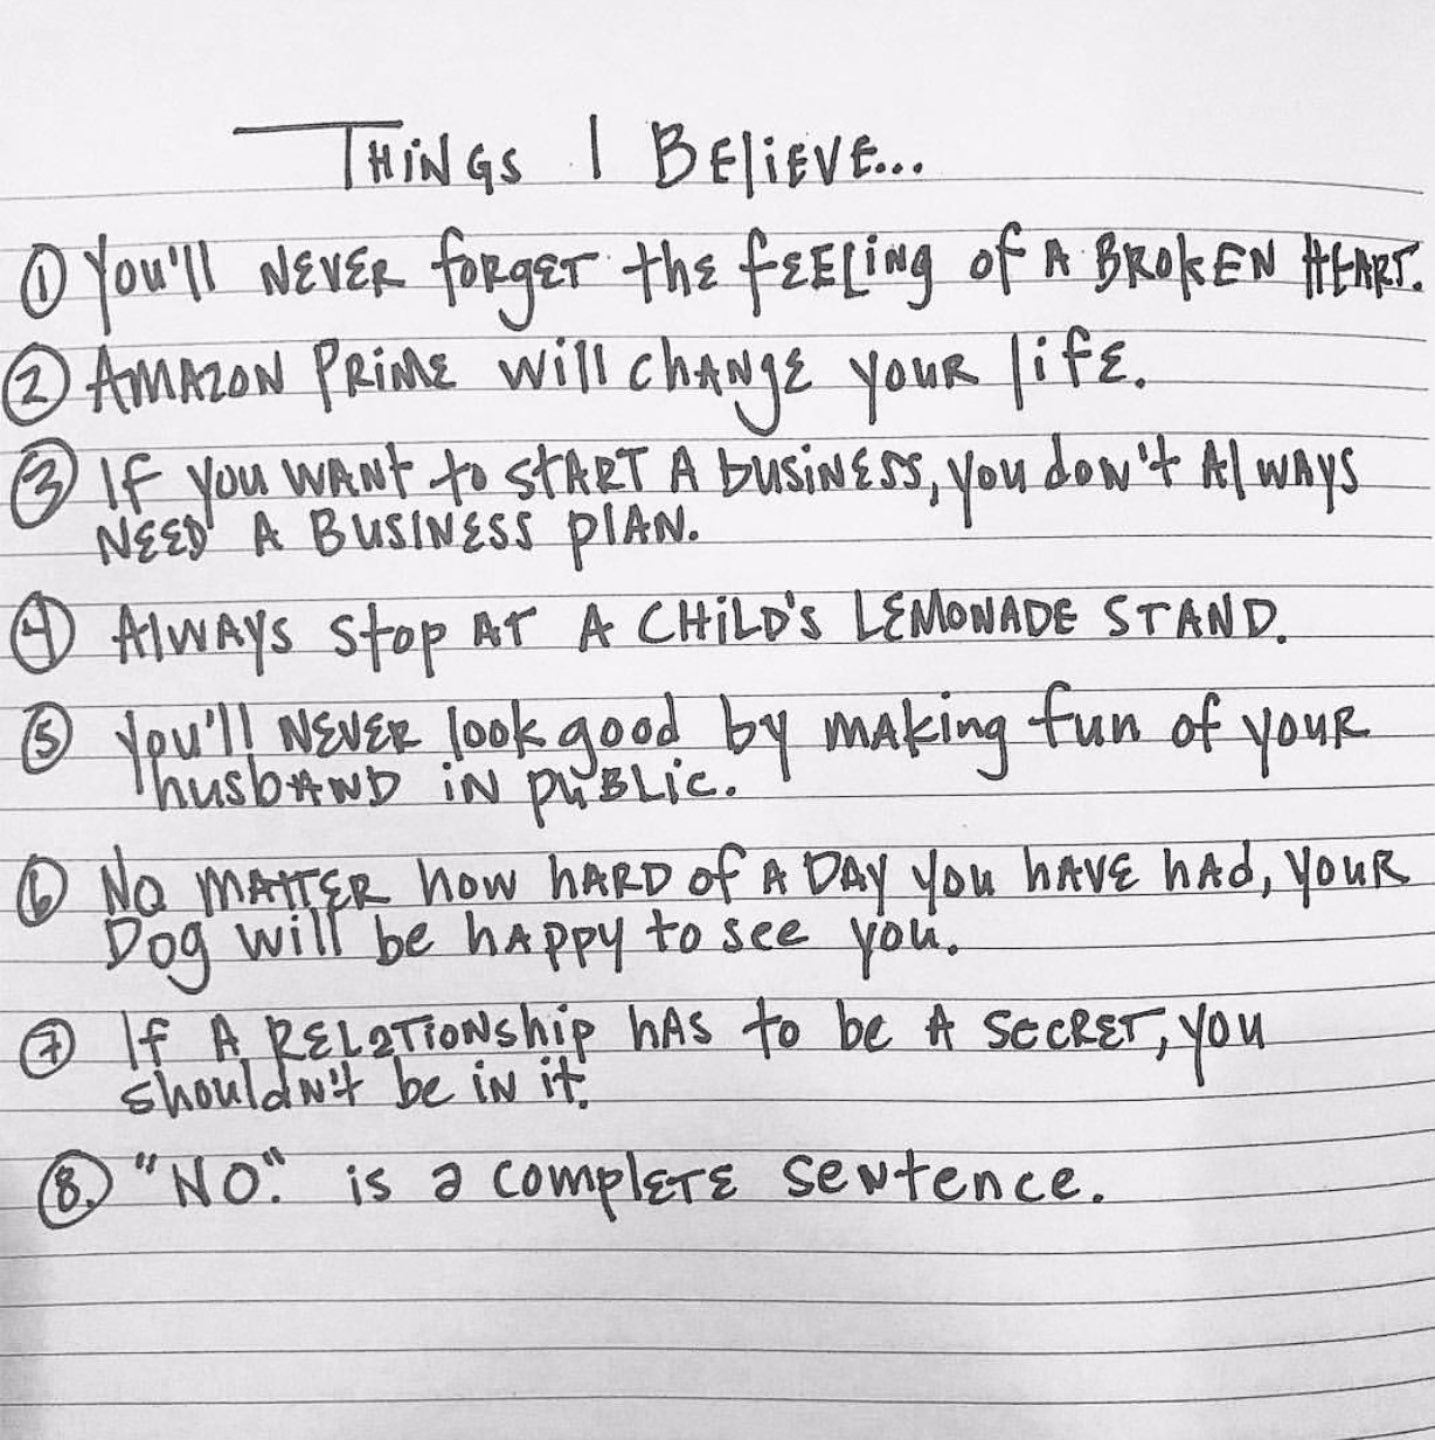 Things I Believe...
① You'll never forget the feeling of a broken heart.
② Amazon Prime will change your life.
③ If you want to start a business, you don't always
need a business plan.
④ Always stop at a child's lemonade stand.
⑤ You'll never look good by making fun of your
husband in public.
⑥ No matter how hard of a day you have had, your
Dog will be happy to see you.
⑦ If a relationship has to be a secret, you
shouldn't be in it.
⑧. "NO." is a complete sentence.